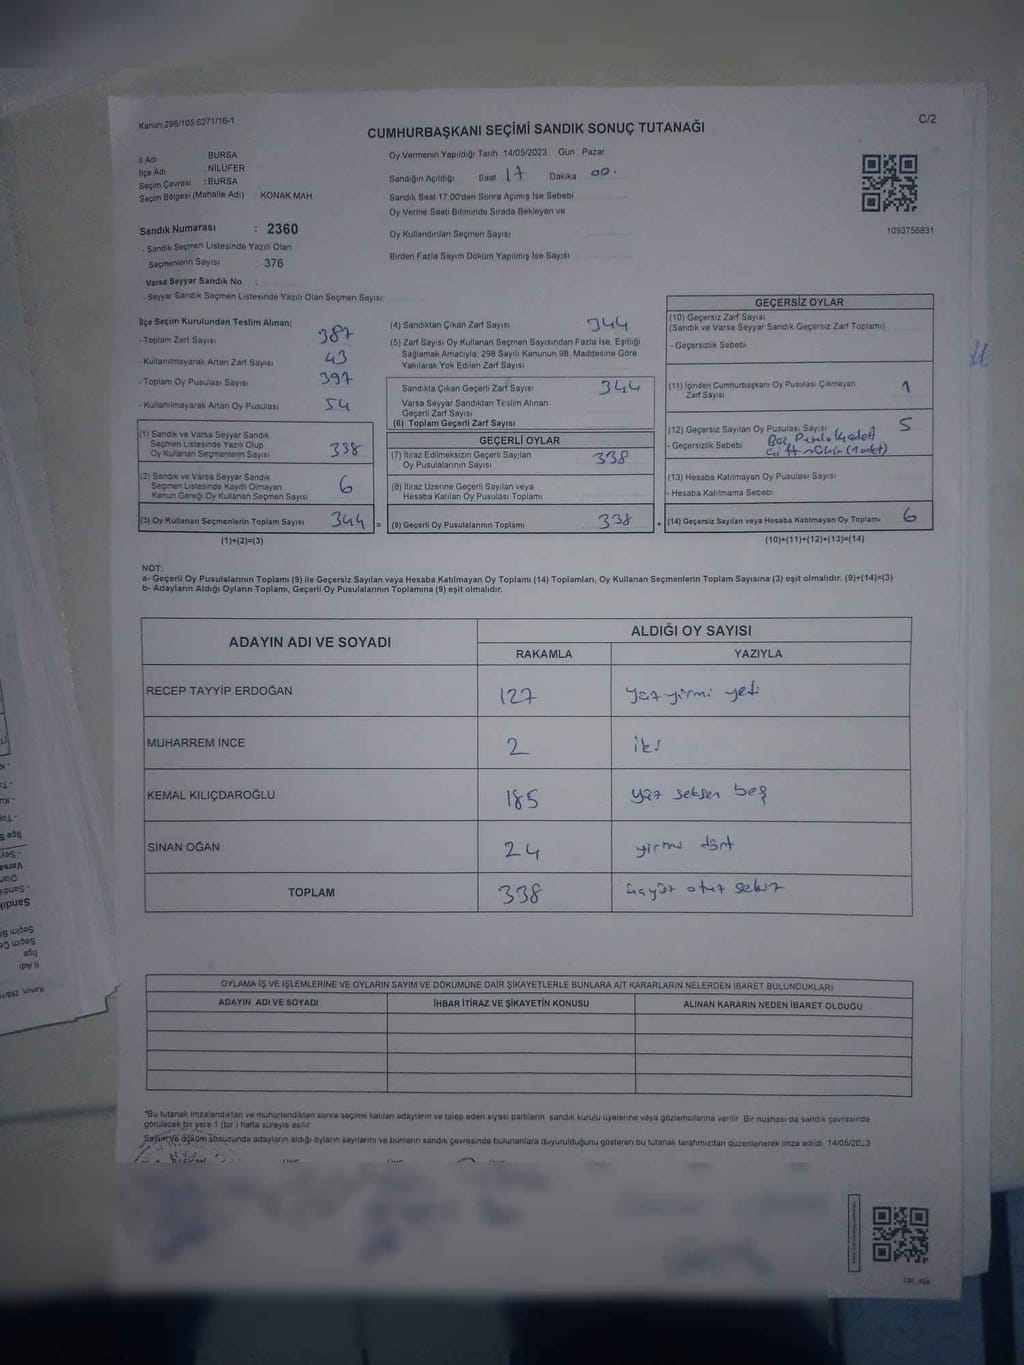 Kanun:298/105 6271/18-1
C/2
CUMHURBAŞKANI SEÇİMİ SANDIK SONUÇ TUTANAĞI
İl Adı : BURSA
İlçe Adı : NİLÜFER
Seçim Çevresi : BURSA
Seçim Bölgesi (Mahalle Adı) : KONAK MAH.
Oy Vermenin Yapıldığı Tarih :14/05/2023 Gün : Pazar
Sandığın Açıldığı Saat 17 Dakika 00.
Sandık Saat 17.00'den Sonra Açımış İse Sebebi
Oy Verme Saati Bitiminde Sırada Bekleyen ve
Oy Kullandırılan Seçmen Sayısı
Birden Fazla Sayım Döküm Yapılmış İse Sayısı
1093756831
Sandık Numarası : 2360
- Sandık Seçmen Listesinde Yazılı Olan
Seçmenlerin Sayısı : 376
Varsa Seyyar Sandık No :
- Seyyar Sandık Seçmen Listesinde Yazılı Olan Seçmen Sayısı:
İlçe Seçim Kurulundan Teslim Alınan;
- Toplam Zarf Sayısı 387
- Kullanılmayarak Artan Zarf Sayısı 43
- Toplam Oy Pusulası Sayısı 397
- Kullanılmayarak Artan Oy Pusulası 54
(1) Sandık ve Varsa Seyyar Sandık
Seçmen Listesinde Yazılı Olup
Oy Kullanan Seçmenlerin Sayısı 338
(2) Sandık ve Varsa Seyyar Sandık
Seçmen Listesinde Kayıtlı Olmayan
Kanun Gereği Oy Kullanan Seçmen Sayısı 6
(3) Oy Kullanan Seçmenlerin Toplam Sayısı 344 =
(1)+(2)=(3)
(4) Sandıktan Çıkan Zarf Sayısı 344
(5) Zarf Sayısı Oy Kullanan Seçmen Sayısından Fazla İse, Eşitliği
Sağlamak Amacıyla, 298 Sayılı Kanunun 98. Maddesine Göre
Yakılarak Yok Edilen Zarf Sayısı
Sandıkta Çıkan Geçerli Zarf Sayısı 344
Varsa Seyyar Sandıktan Teslim Alınan
Geçerli Zarf Sayısı
(6) Toplam Geçerli Zarf Sayısı
GEÇERLİ OYLAR
(7) İtiraz Edilmeksizin Geçerli Sayılan
Oy Pusulalarının Sayısı 338
(8) İtiraz Üzerine Geçerli Sayılan veya
Hesaba Katılan Oy Pusulası Toplamı
(9) Geçerli Oy Pusulalarının Toplamı 338 +
GEÇERSİZ OYLAR
(10) Geçersiz Zarf Sayısı
(Sandık ve Varsa Seyyar Sandık Geçersiz Zarf Toplamı)
- Geçersizlik Sebebi
(11) İçinden Cumhurbaşkanı Oy Pusulası Çıkmayan
Zarf Sayısı 1
(12) Geçersiz Sayılan Oy Pusulası Sayısı 5
- Geçersizlik Sebebi
(13) Hesaba Katılmayan Oy Pusulası Sayısı
- Hesaba Katılmama Sebebi
(14) Geçersiz Sayılan veya Hesaba Katılmayan Oy Toplamı 6
(10)+(11)+(12)+(13)=(14)
NOT:
a- Geçerli Oy Pusulalarının Toplamı (9) ile Geçersiz Sayılan veya Hesaba Katılmayan Oy Toplamı (14) Toplamları, Oy Kullanan Seçmenlerin Toplam Sayısına (3) eşit olmalıdır. (9)+(14)=(3)
b- Adayların Aldığı Oyların Toplamı, Geçerli Oy Pusulalarının Toplamına (9) eşit olmalıdır.
ADAYIN ADI VE SOYADI ALDIĞI OY SAYISI
RAKAMLA YAZIYLA
RECEP TAYYİP ERDOĞAN 127 yüz yirmi yedi
MUHARREM İNCE 2 iki
KEMAL KILIÇDAROĞLU 185 yüz seksen beş
SİNAN OĞAN 24 yirmi dört
TOPLAM 338 üçyüz otuz sekiz
OYLAMA İŞ VE İŞLEMLERİNE VE OYLARIN SAYIM VE DÖKÜMÜNE DAİR ŞİKAYETLERLE BUNLARA AİT KARARLARIN NELERDEN İBARET BULUNDUKLARI
ADAYIN ADI VE SOYADI İHBAR İTİRAZ VE ŞİKAYETİN KONUSU ALINAN KARARIN NEDEN İBARET OLDUĞU
*Bu tutanak imzalandıktan ve mühürlendikten sonra seçime katılan adayların ve talep eden siyasi partilerin sandık kurulu üyelerine veya gözlemcilerine verilir. Bir nüshası da sandık çevresinde
görülecek bir yere 1 (bir) hafta süreyle asılır.
Sayım ve döküm sonucunda adayların aldığı oyların sayılarını ve bunların sandık çevresinde bulunanlara duyurulduğunu gösteren bu tutanak tarafımızdan düzenlenerek imza edildi. 14/05/2023